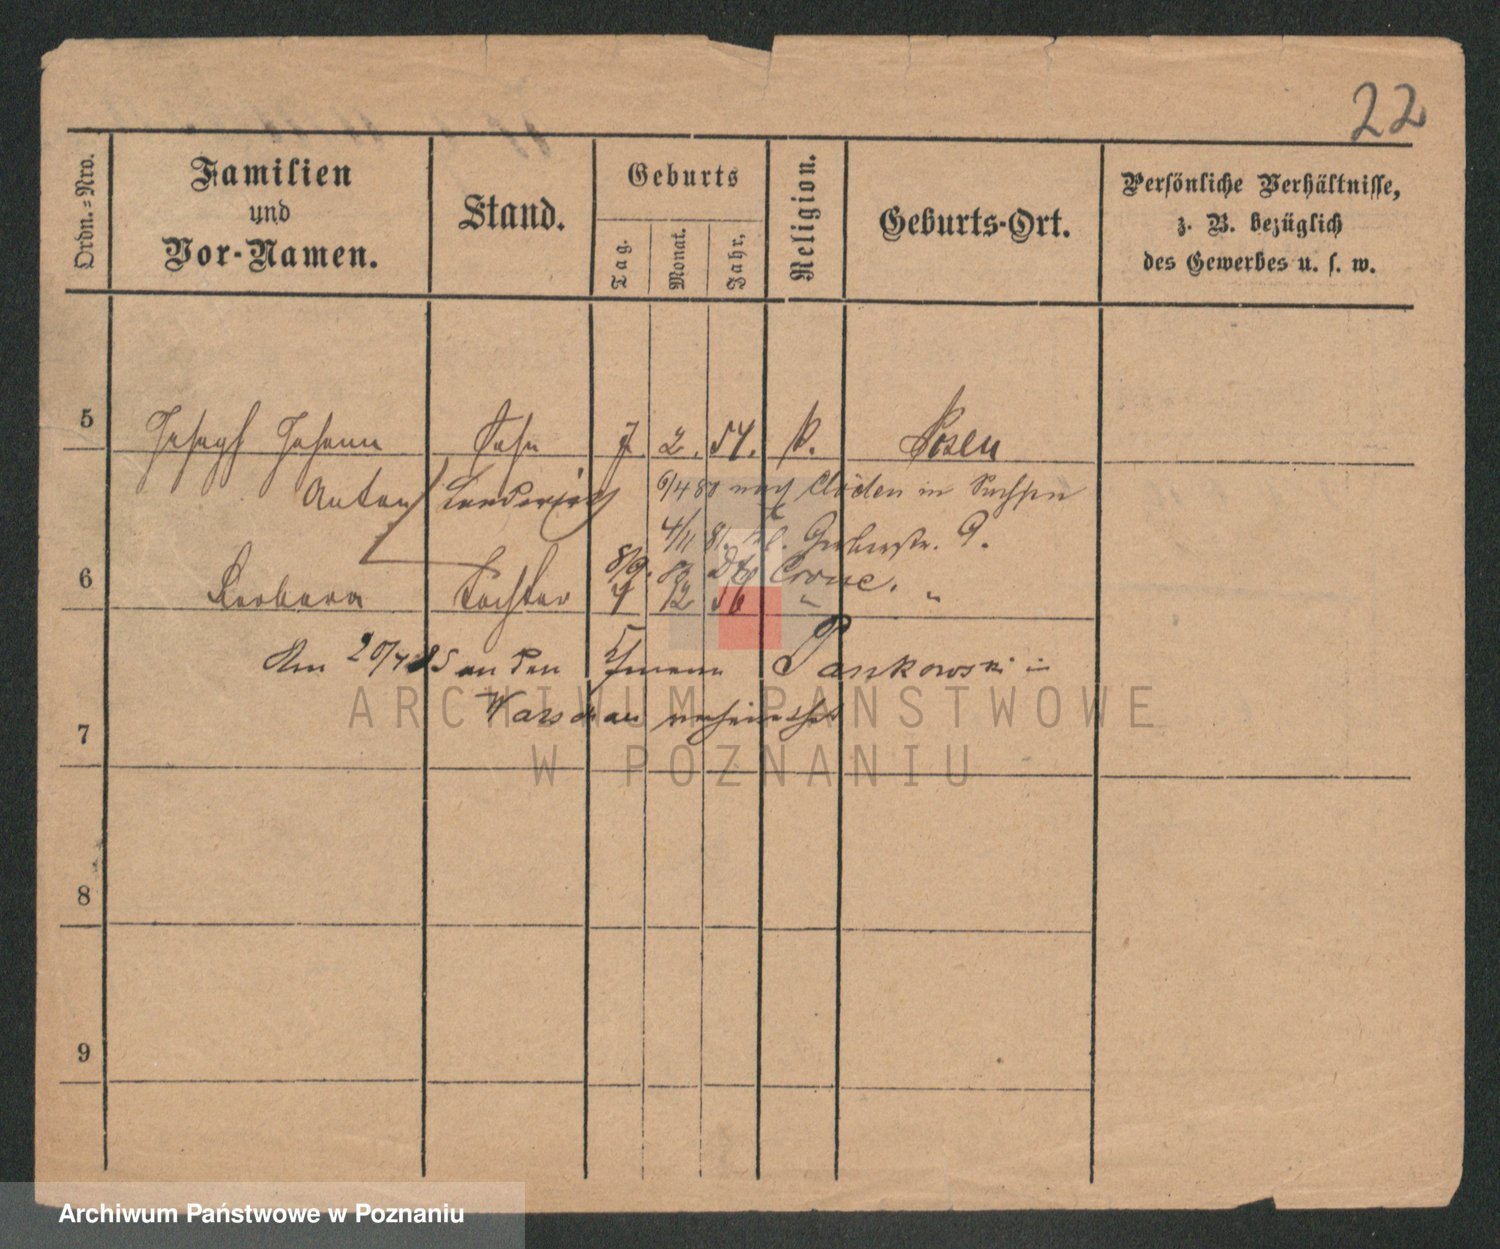 22
Ordn.=Nro.
Familien
und
Vor-Namen.
Stand.
Geburts
Tag.
Monat.
Jahr,
Religion.
Geburts-Ort.
Persönliche Verhältnisse,
z. B. bezüglich
des Gewerbes u. s. w.
5 Joseph Johann Sohn 7. 2. 54. k. Posen
Anton 6/4 80 nach Clöden in Sachsen
4/11 81. kl. Gerberstr. 9.
8/9. 83 Dtsch Crone.
6 Barbara Tochter 4 12 56 " "
Am 20/4 85 an den Pankowski in
7 Warschau verheirathet
8
9
ARCHIWUM PAŃSTWOWE
W POZNANIU
Archiwum Państwowe w Poznaniu